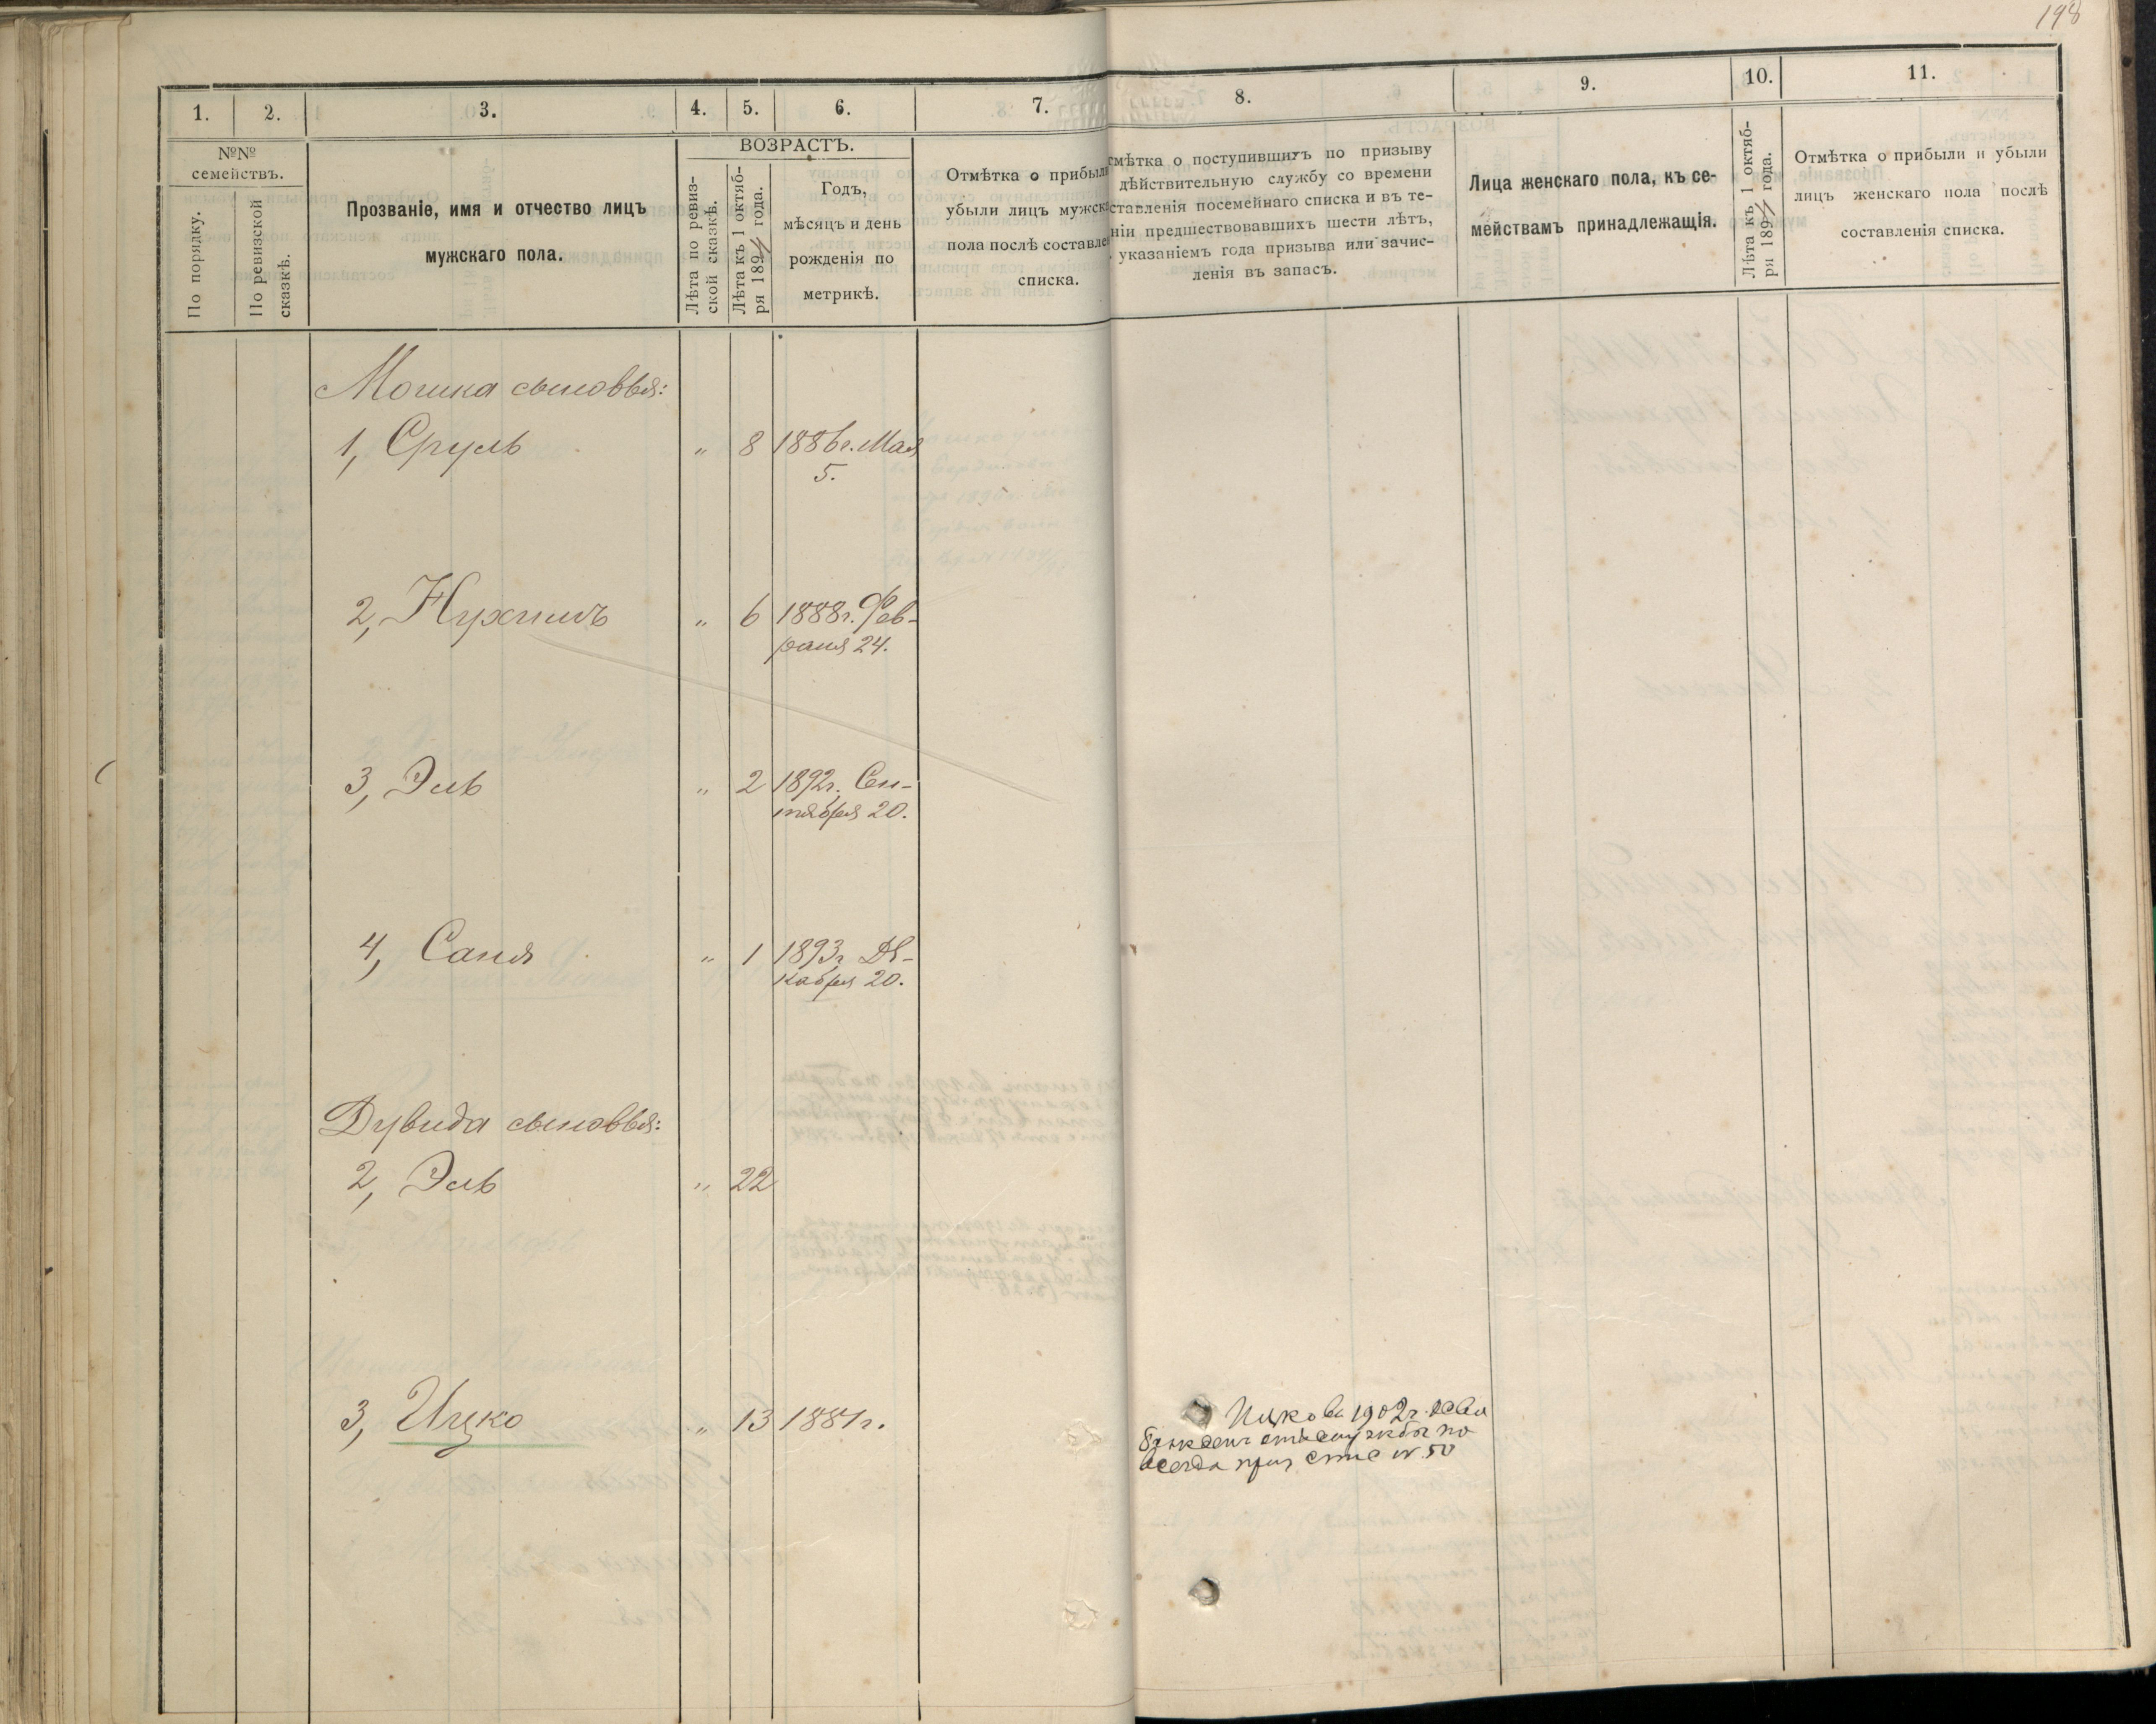 198
1.
2.
3.
4.
5.
6.
7.
8.
9.
10.
11.
№№
семействъ.
По порядку.
По ревизской
сказкѣ.
Прозваніе, имя и отчество лицъ
мужскаго пола.
ВОЗРАСТЪ.
Лѣта по ревиз-
ской сказкѣ.
Лѣта къ 1 октяб-
ря 1894 года.
Годъ,
мѣсяцъ и день
рожденія по
метрикѣ.
Отмѣтка о прибыли
убыли лицъ мужск
пола послѣ составле
списка.
смѣтка о поступившихъ по призыву
дѣйствительную службу со времени
ставленія посемейнаго списка и въ те-
ніи предшествовавшихъ шести лѣтъ,
указаніемъ года призыва или зачис-
ленія въ запасъ.
Лица женскаго пола, къ се-
мействамъ принадлежащія.
Лѣта къ 1 октяб-
ря 1894 года.
Отмѣтка о прибыли и убыли
лицъ женскаго пола послѣ
составленія списка.
Мошка сыновья:
1, Сруль " 8 1886г. Мая
5.
2, Нухимъ " 6 1888г. Фев-
раля 24.
3, Эль " 2 1892г. Сен-
тября 20.
4, Саня " 1 1893г. Де-
кабря 20.
Дувида сыновья:
2, Эль " 22
3, Ицко " 13 1881г.
Ицко въ 1902г. осво
божденъ отъ службы на
всегда № 50